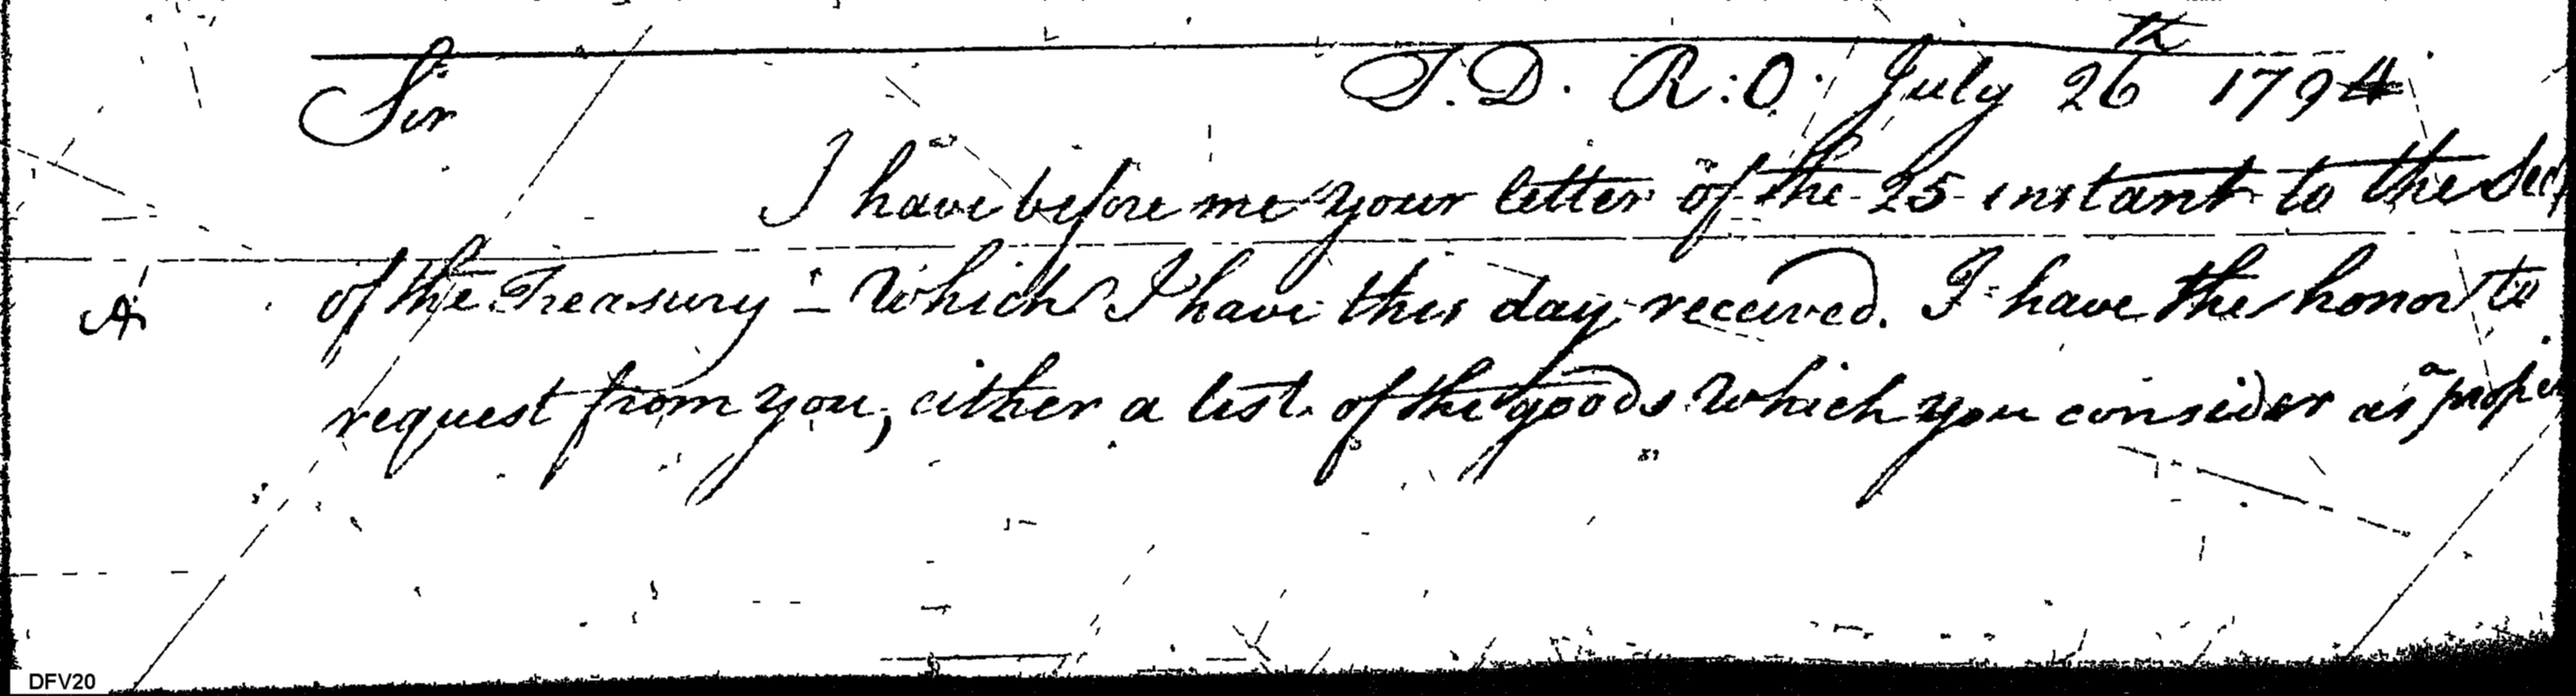 Sir
T. D. R: O. July 26th 1794
I have before me your letter of the 25 instant to the Secy
of the Treasury - Which I have this day received. I have the honor to
A
request from you, either a list of the goods Which you consider as a proper
DFV20